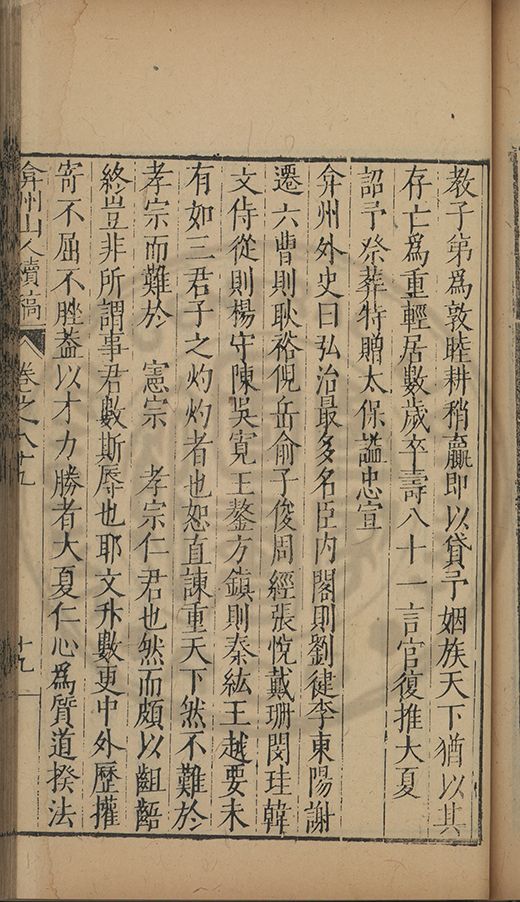 教子弟爲敦睦耕稍贏即以貸予姻族天下猶以其
存亡爲重輕居數歲卒壽八十一言官復推大夏
詔予祭葬特贈太保謚忠宣
弇州外史曰弘治最多名臣内閣則劉健李東陽謝
遷六曹則耿裕倪岳俞子俊周經張悅戴珊閔珪韓
文侍從則楊守陳吳寬王鏊方鎮則秦紘王越要未
有如三君子之灼灼者也恕直諫重天下然不難於
孝宗而難於　憲宗　孝宗仁君也然而頗以齟齬
終豈非所謂事君數斯辱也耶文升數更中外歷擢
寄不屈不脞葢以才力勝者大夏仁心爲質道揆法
弇州山人續稿　卷之八十五　十九